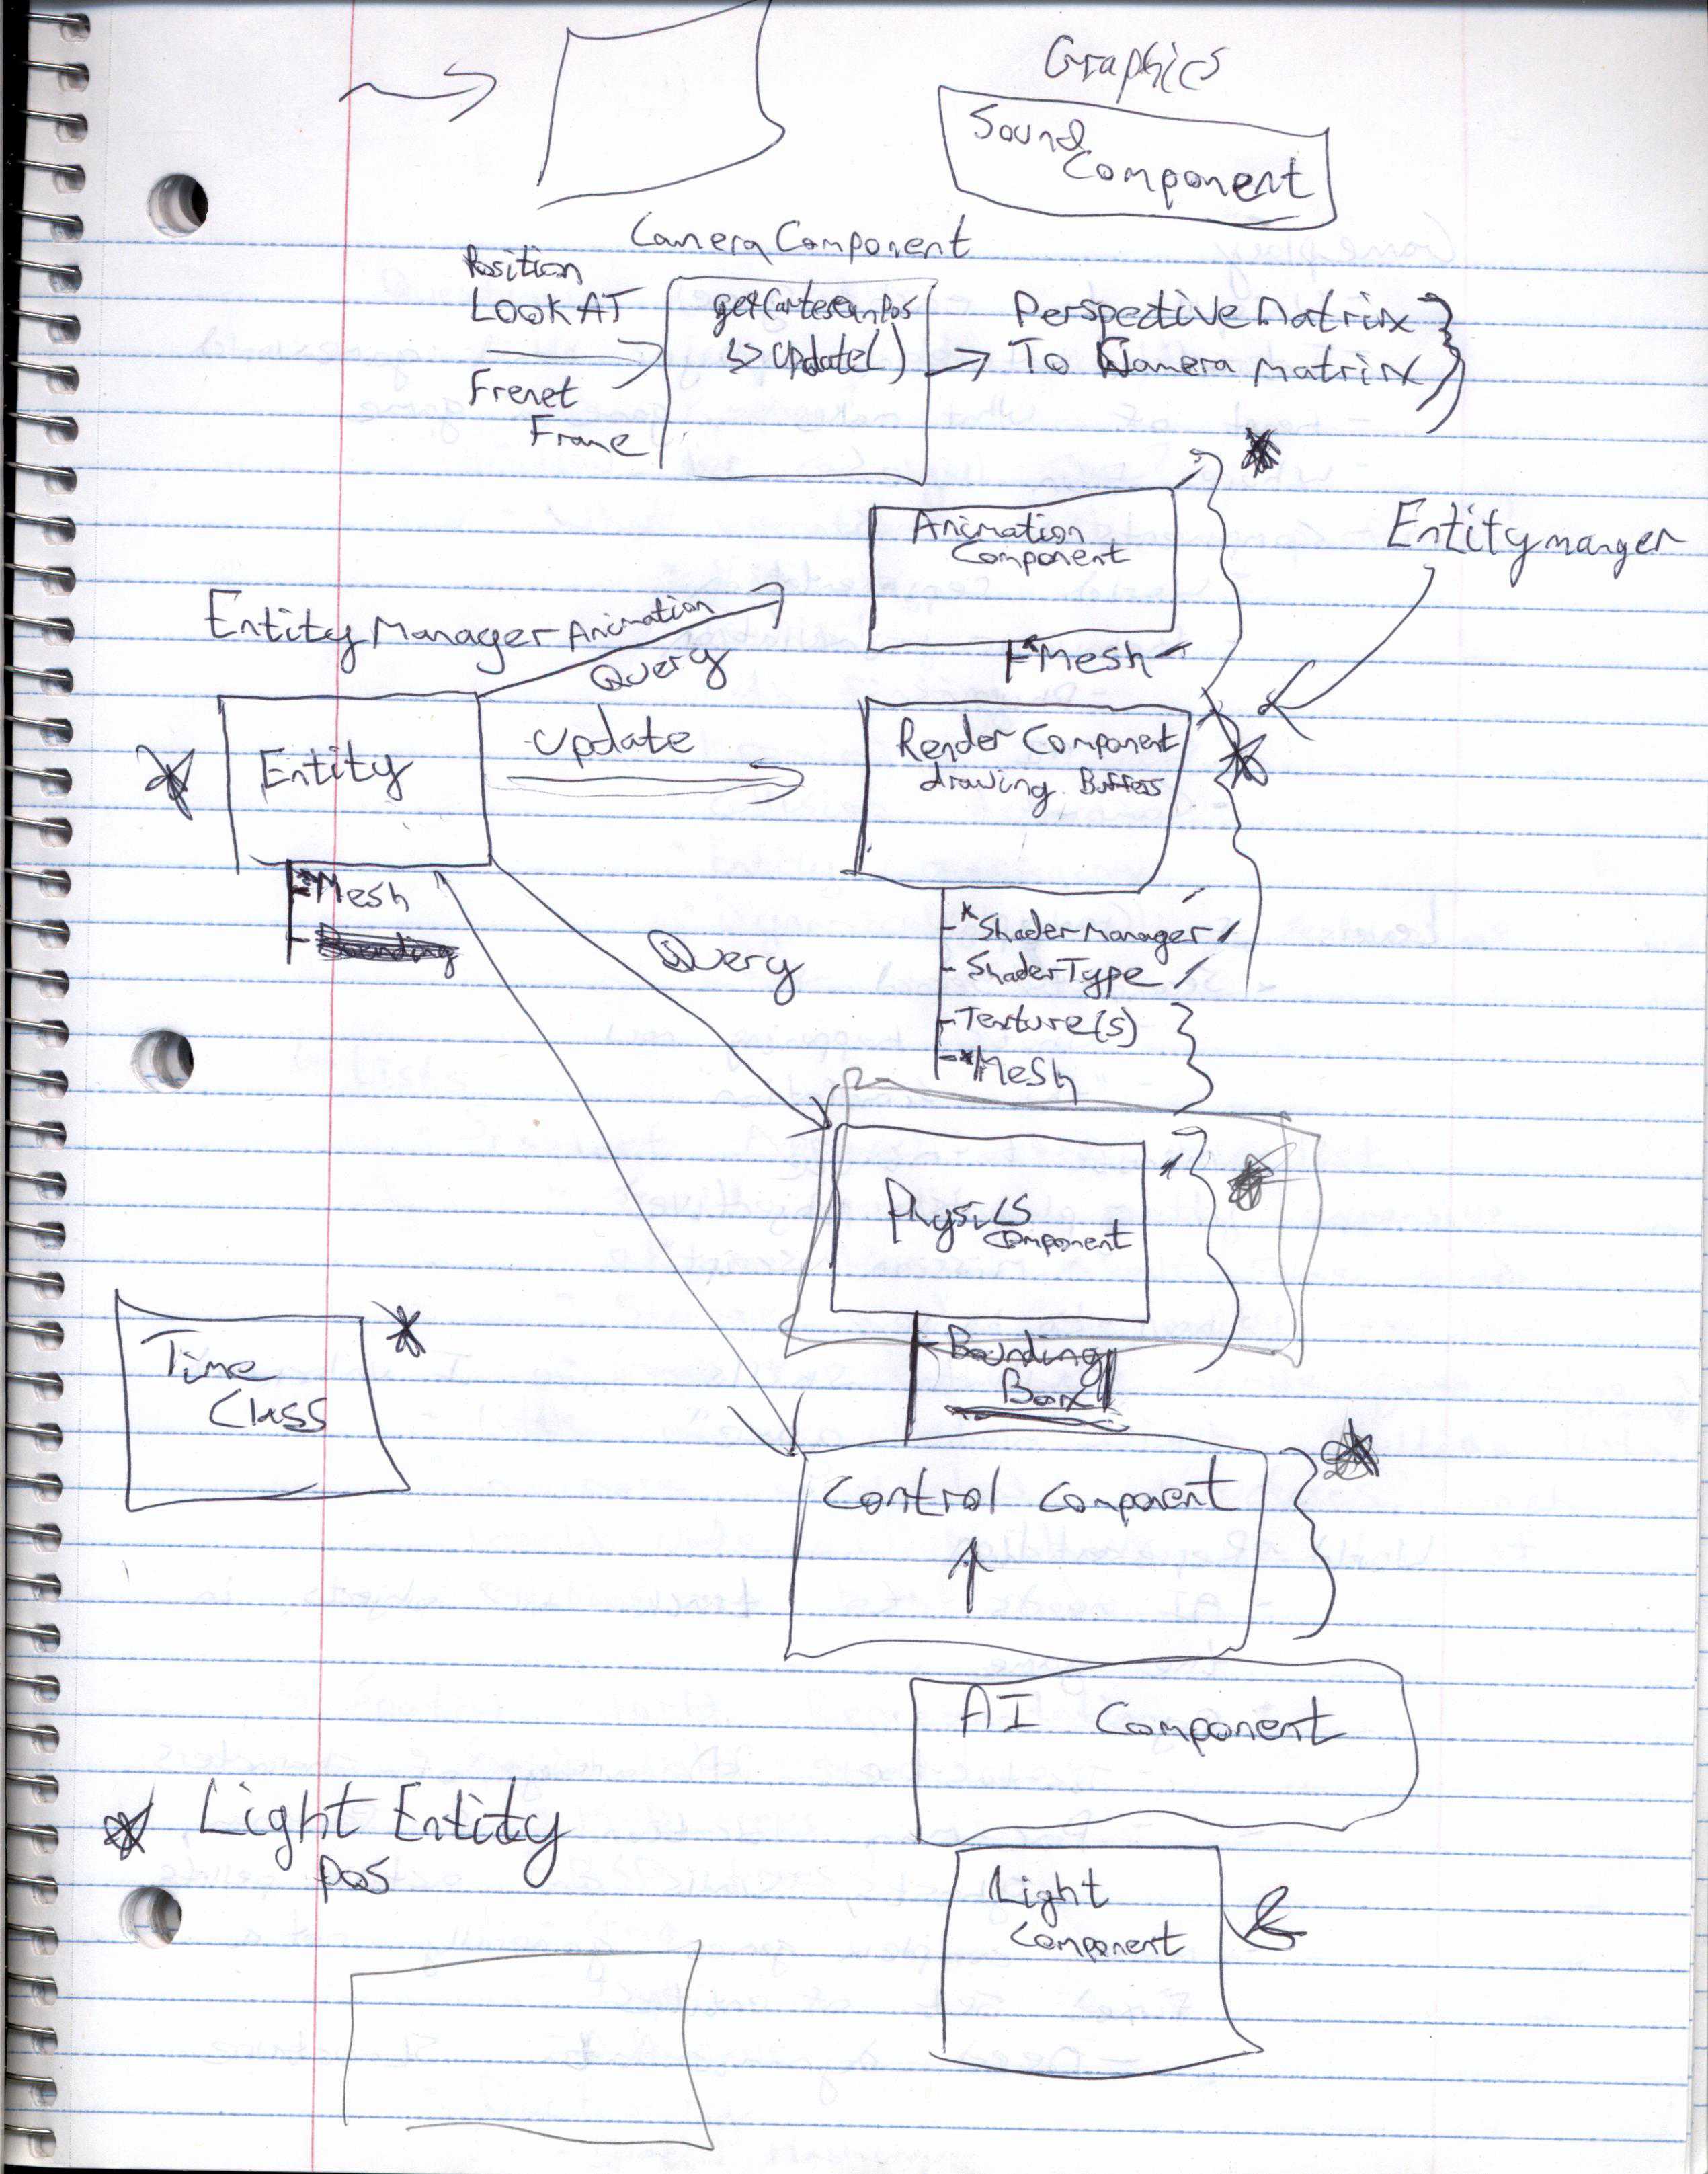 Graphics
Sound
Component
Camera Component
Position
LOOKAT
Frenet
Frame
getCartesianPos
↳> Update()
Perspective Matrix
To Camera Matrix
Animation
Component
*Mesh
Entitymanger
Entity Manager Animation
Query
Update
Entity
*Mesh
Bounding
Render Component
drawing Buffers
*ShaderManager
- ShaderType
- Texture(s)
- *Mesh
Query
Physics
Component
- Bounding
Box
Time
Class
Control Component
AI Component
Light Entity
pos
Light
Component